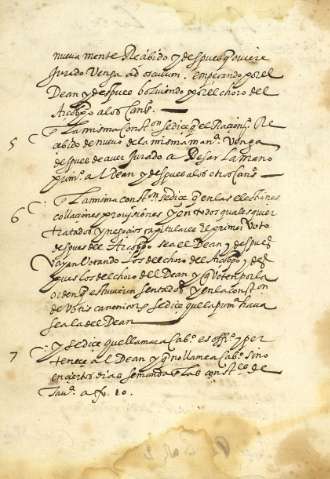 nueva mente Recibido y despues q̃ oviere
Jurado Venga ad osculum. empeçando por el
Dean y despues bolviendo por el choro del
Arcedi.º a los Can.os
5 La misma Const.on se dice q̃ el Racion.º Re
cibido de nuevo de la misma man.ª Venga
despues de aver Jurado a Besar La mano
prim.º al Dean y despues a los otros Can.os
6 La misma const.on se dice q̃ en las elestiones
collaciones provisiones y en todos qualesquier
tratados y negocios capitulares el primer Voto
despues del Arçobpo sea el Dean y despues
vayan Votando Los del choro del Arçobpo y des
pues los del choro del Dean y q̃ Voten por la
orden q̃ estuvieren sentados y en la const.on
de Votis canonicor. se dice que la prim.ª hava
sea la del Dean
7 y se dice que llamar a Cab.º es offi.º y per
tenece al Dean y q̃ no llame a Cab.º sino
en ciertos dias secundum las const.es de
Tau.ª a fo. 10.